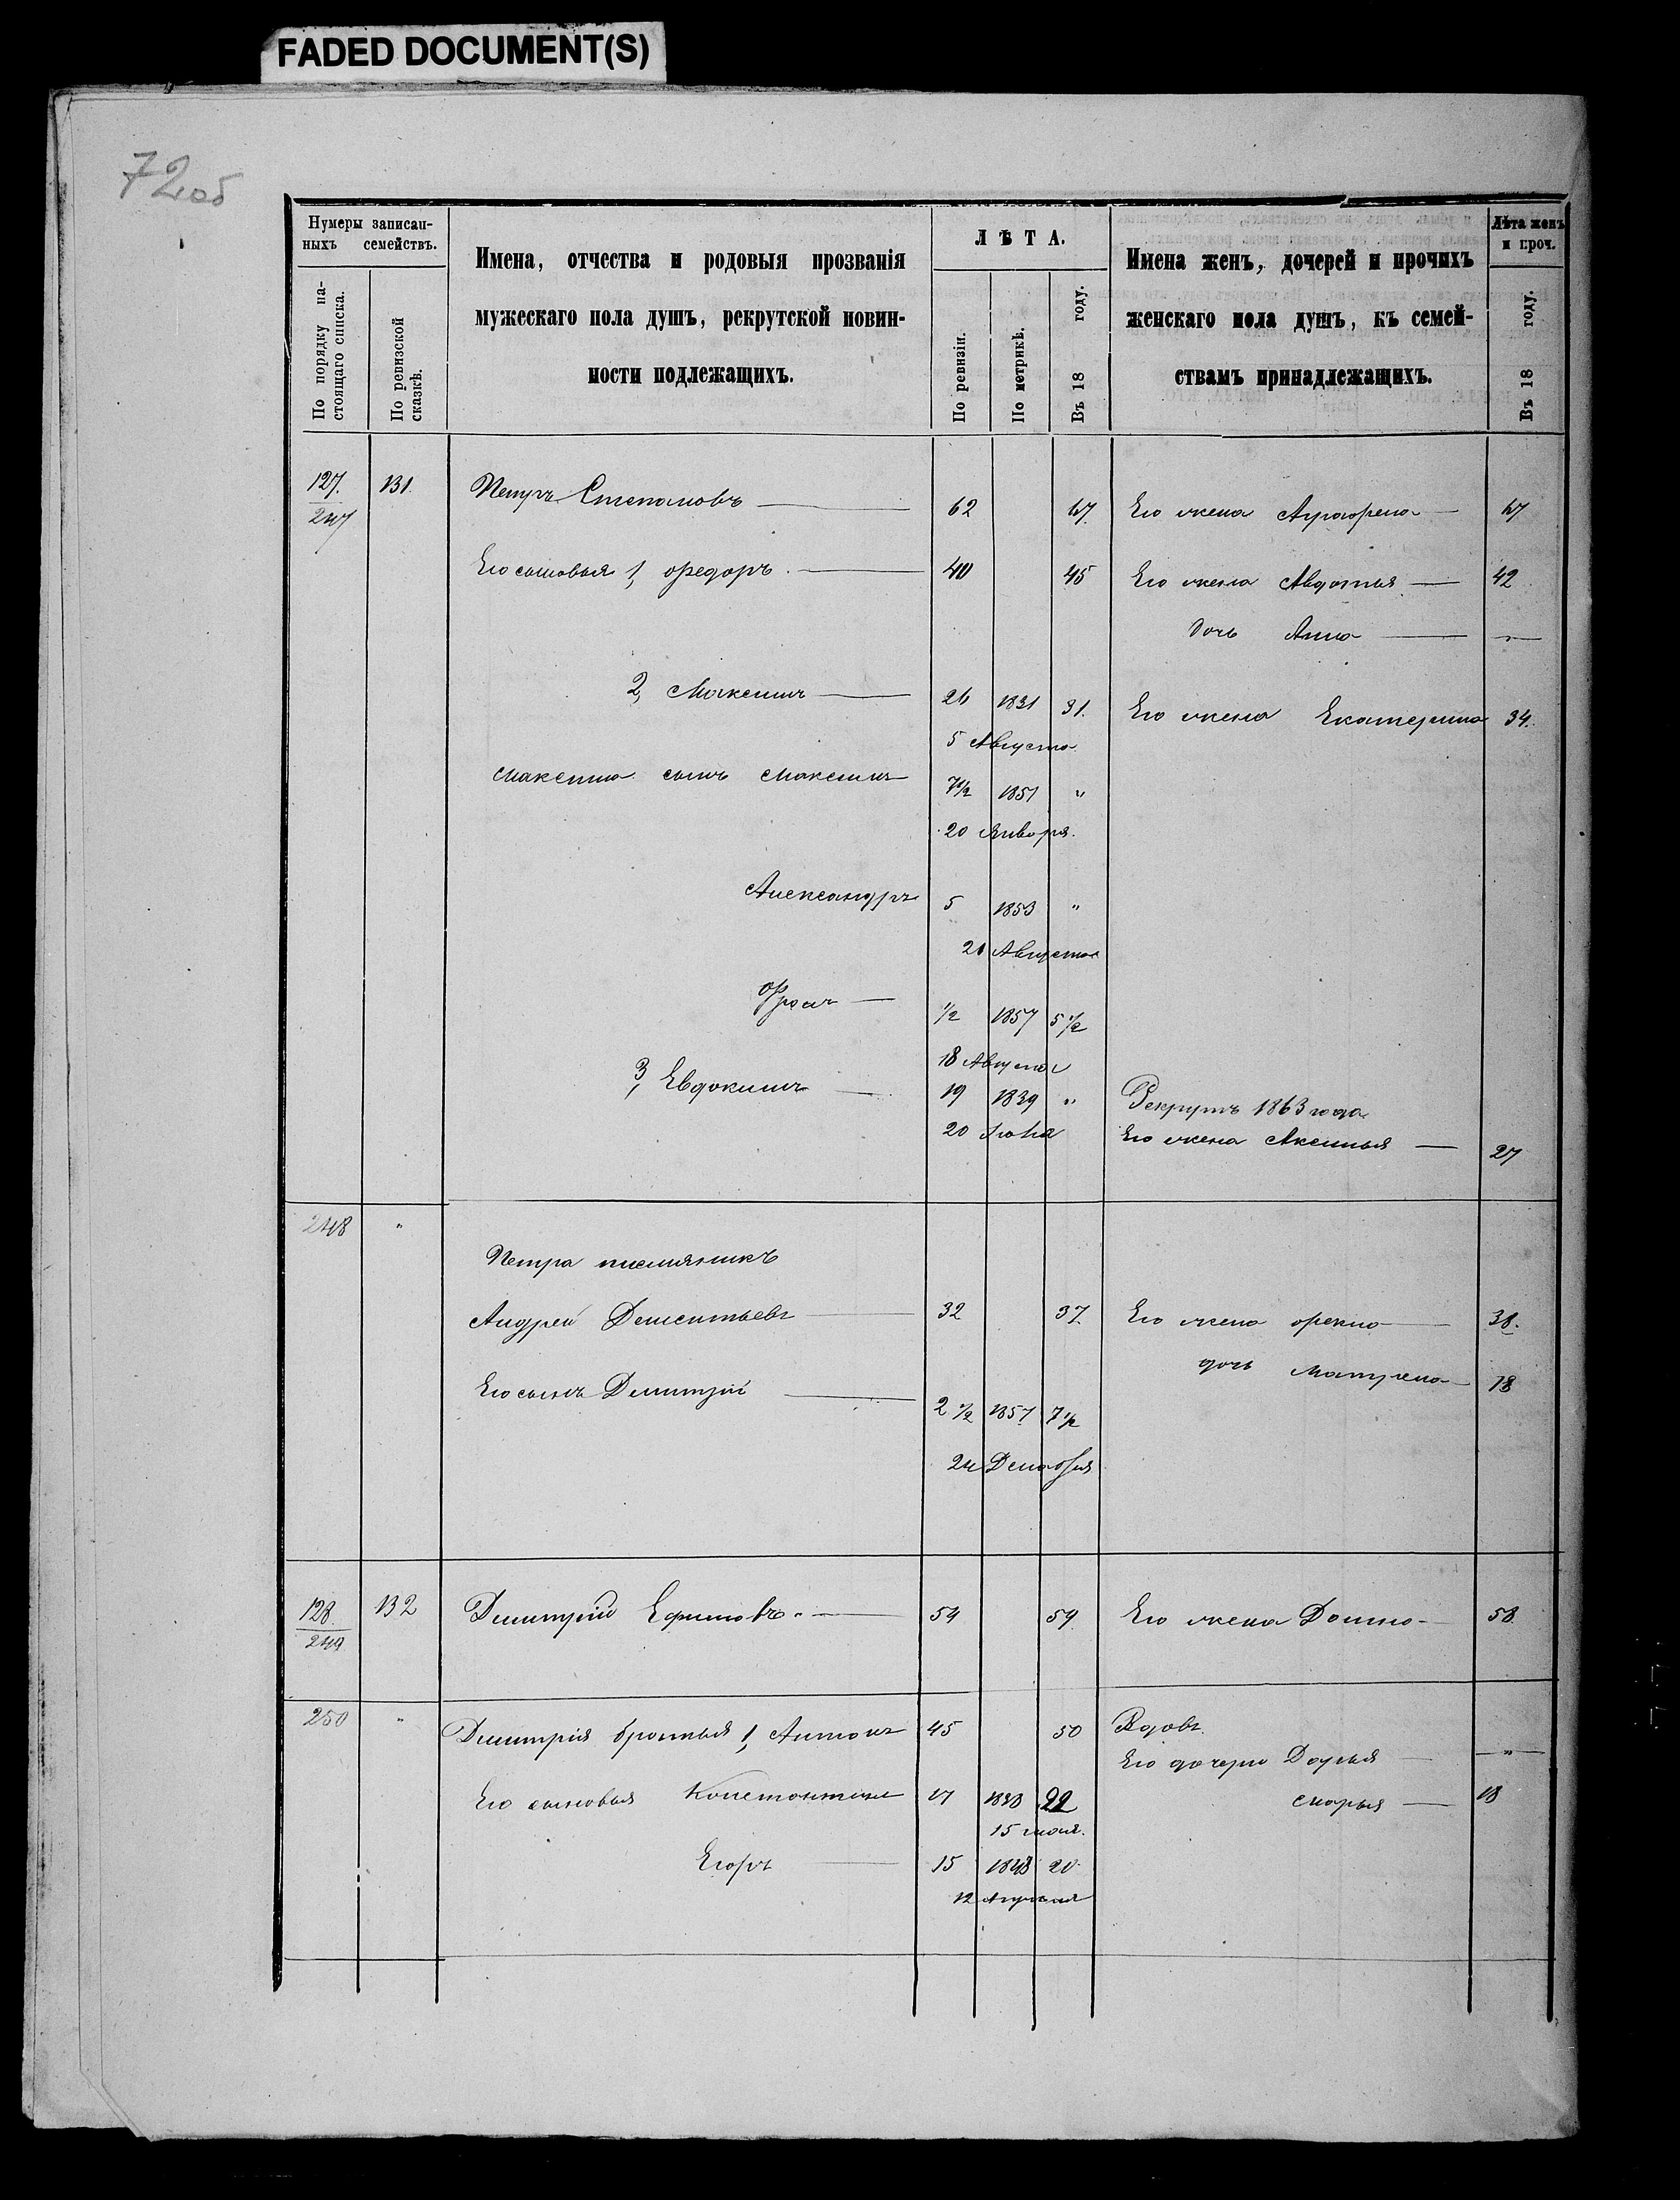 FADED DOCUMENT(S)
72об
Нумеры записан-
ныхъ семействъ.
По порядку на-
стоящаго списка.
По ревизской
сказкѣ.
Имена, отчества и родовыя прозванія
мужескаго пола душъ, рекрутской повин-
ности подлежащихъ.
ЛѢТА.
По ревизіи.
По метрикѣ.
Въ 18 году.
Имена женъ, дочерей и прочихъ
женскаго пола душъ, къ семей-
ствамъ принадлежащихъ.
Лѣта женъ
и проч.
Въ 18 году.
127. 131. Петръ Степановъ 62 67. Его жена Аграфена 67
247
Его сыновья 1, Федоръ. 40 45 Его жена Авдотья 42
дочь Анна "
2, Максимъ 26 1831 31. Его жена Екатерина 34.
5 Августа
Максима сынъ Максимъ 7 1/2 1851 "
20 Января.
Александръ 5 1853 "
21 Августа
Фролъ 1/2 1857 5 1/2
18 Августа
3, Евдокимъ 19 1839 " Рекрутъ 1863 года
20 Іюля Его жена Аксинья 27
248 "
Петра племянникъ
Андрей Дементьевъ 32 37 Его жена Фекла 38.
дочь Матрена 18
Его сынъ Димитрій 2 1/2 1857 7 1/2
24 Декабря
128 132 Димитрій Ефимовъ. 54 59 Его жена Домна 58.
249
250 " Димитрія братья 1, Антонъ 45 50 Вдовъ.
Его дочери Дарья "
Его сыновья Константинъ 17 22 Марья 18
15 мая.
Егоръ 15 1843 20
12 Апрѣля